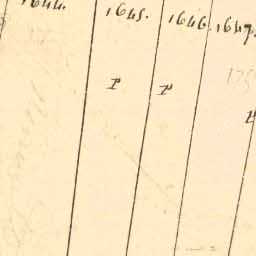 1644. 1645. 1646. 1647.
P P P